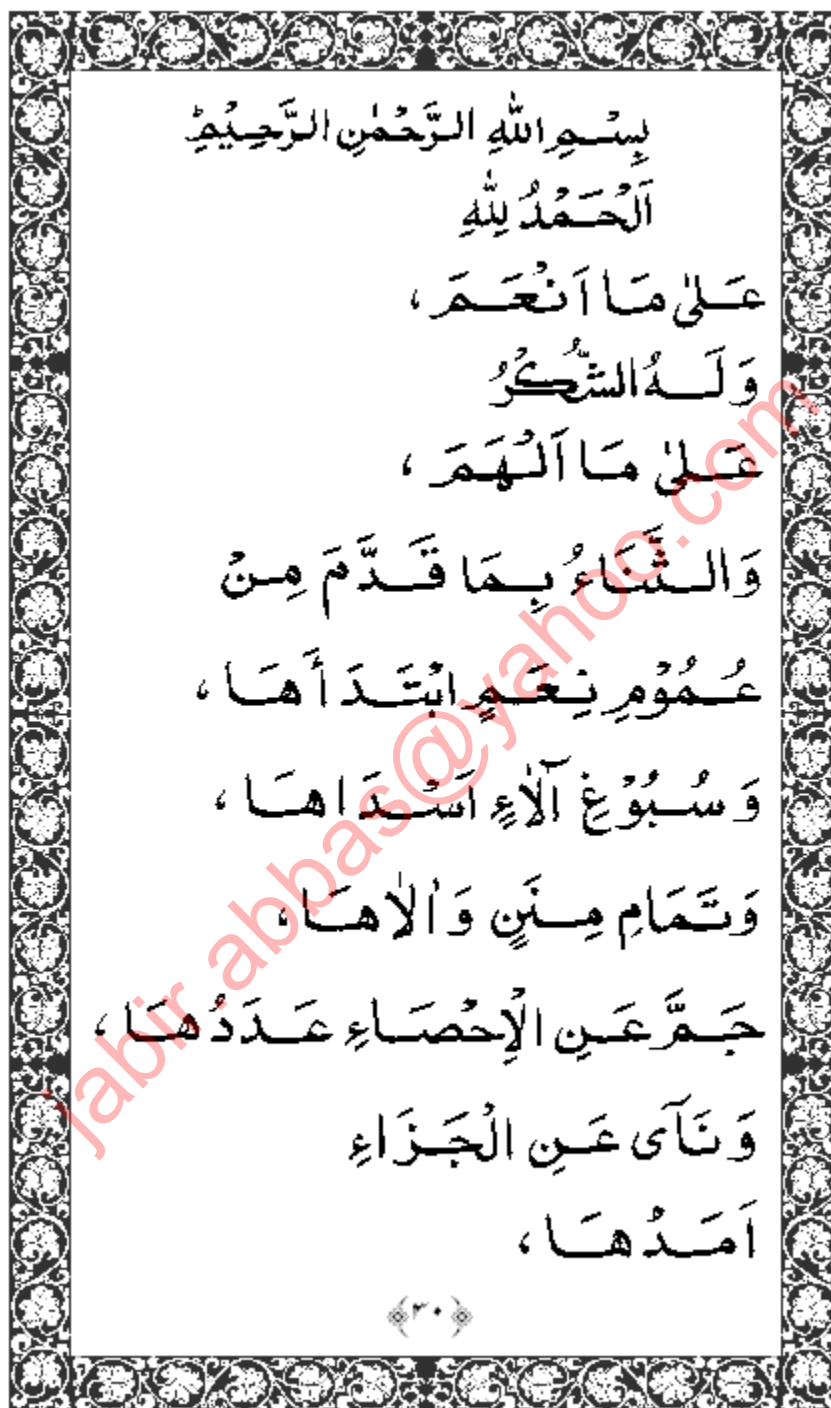 بِسْمِ اللّٰهِ الرَّحْمٰنِ الرَّحِيْمِؕ
اَلْحَمْدُ لِلّٰهِ
عَلٰى مَا اَنْعَمَ،
وَلَهُ الشُّكْرُ
عَلٰى مَا اَلْهَمَ،
وَالثَّنَاءُ بِمَا قَدَّمَ مِنْ
عُمُوْمِ نِعَمٍ ابْتَدَأَهَا،
وَسُبُوْغِ آلَاءٍ اَسْدَاهَا،
وَتَمَامِ مِنَنٍ وَالَاهَا،
جَمَّ عَنِ الْاِحْصَاءِ عَدَدُهَا،
وَنَآى عَنِ الْجَزَاءِ
اَمَدُهَا،
﴿۳۰﴾
jabir.abbas@yahoo.com